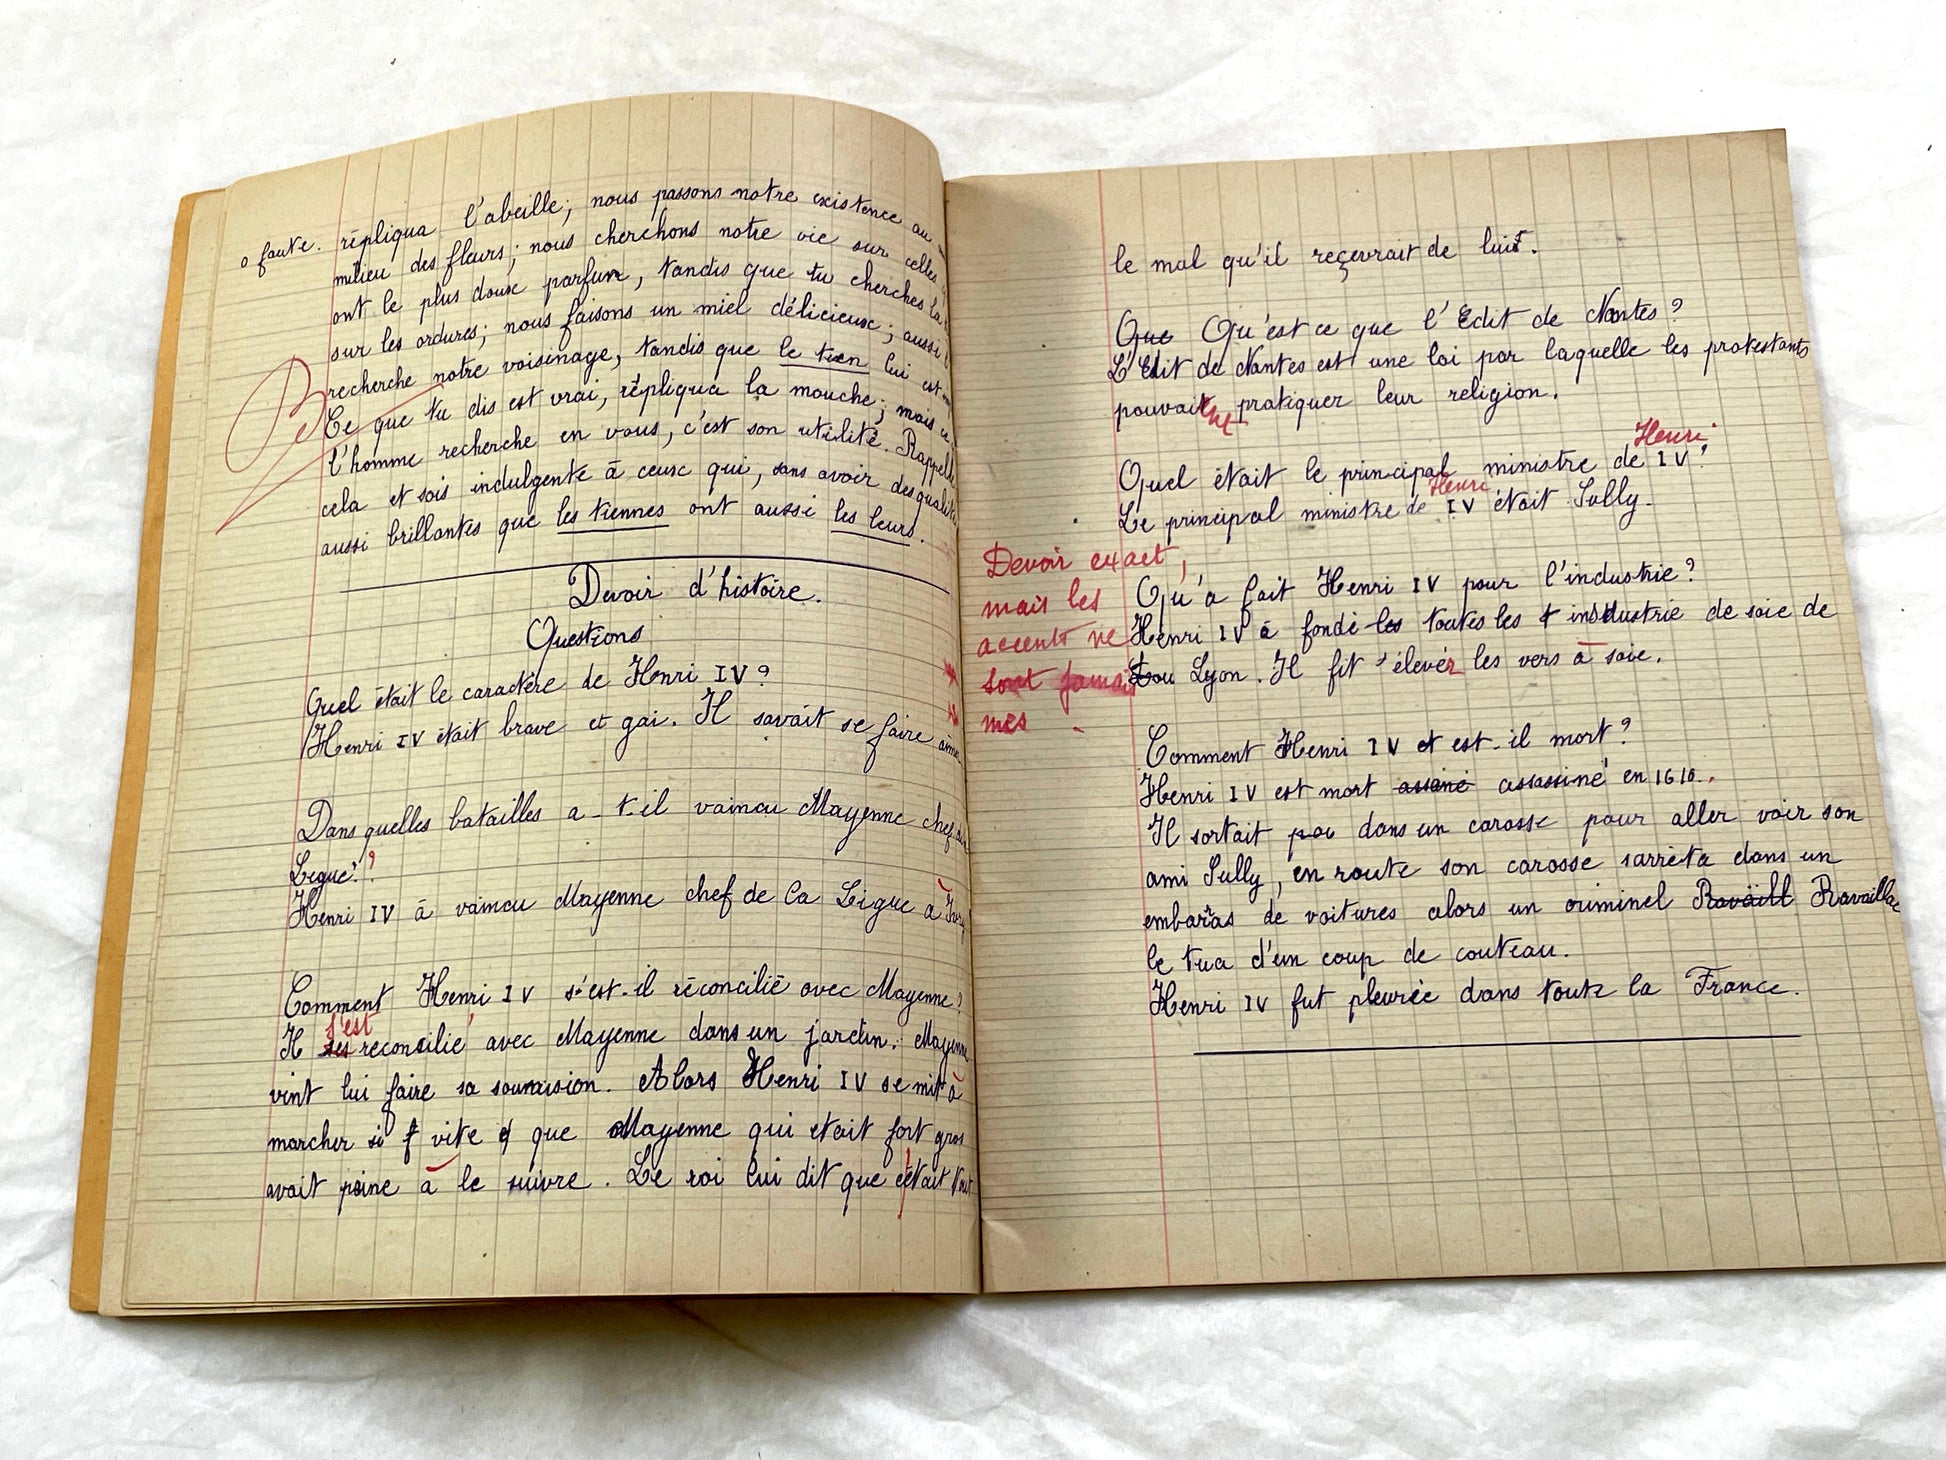 0 faute.
répliqua l'abeille; nous passons notre existence au
milieu des fleurs; nous cherchons notre vie sur celles
ont le plus doux parfum, tandis que tu cherches la
sur les ordures; nous faisons un miel délicieux; aussi
recherche notre voisinage, tandis que le tien lui est
Ce que tu dis est vrai, répliqua la mouche; mais ce
l'homme recherche en vous, c'est son utilité. Rappelle
cela et sois indulgente à ceux qui, sans avoir des qualités
aussi brillantes que les tiennes ont aussi les leurs.
B
Devoir d'histoire.
Questions
Quel était le caractère de Henri IV?
Henri IV était brave et gai. Il savait se faire aimer
Dans quelles batailles a-t-il vaincu Mayenne chef
Ligue??
Henri IV à vaincu Mayenne chef de la Ligue à Ivry
Comment Henri IV s'est-il réconcilié avec Mayenne?
s'est
Il ses reconcilié avec Mayenne dans un jardin. Mayenne
vint lui faire sa soumision. Alors Henri IV se mit à
marcher si f vite q que Mayenne qui etait fort gros
avait peine à le suivre. Le roi lui dit que c'était tout
le mal qu'il reçevrait de lui.
Que Qu'est ce que l'Edit de Nantes?
L'Edit de Nantes est une loi par laquelle les protestants
pouvait pratiquer leur religion.
ent
Henri
Quel était le principal ministre de IV?
Henri
Le principal ministre de IV était Sully.
Devoir exact,
mais les
accents ne
sont jamais
mes
Qu'a fait Henri IV pour l'industrie?
Henri IV à fondé les toutes les t industrie de soie de
Lou Lyon. Il fit élever les vers à soie.
Comment Henri IV et est-il mort?
Henri IV est mort assainé assassiné en 1610.
Il sortait pou dans un carosse pour aller voir son
ami Sully, en route son carosse sarrèta dans un
embarras de voitures alors un criminel Ravaill Ravaillac
le tua d'un coup de couteau.
Henri IV fut pleurée dans toute la France.